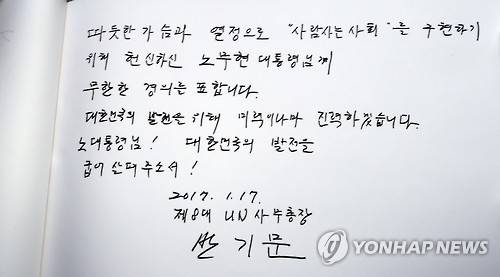 따뜻한 가슴과 열정으로 "사람사는 사회"를 구현하기
위해 헌신하신 노무현 대통령님께
무한한 경의를 표합니다.
대한민국의 발전을 위해 미력이나마 진력하겠습니다.
노대통령님! 대한민국의 발전을
굽어 살펴주소서!
2017. 1.17.
제8대 UN사무총장
반기문
YONHAP NEWS